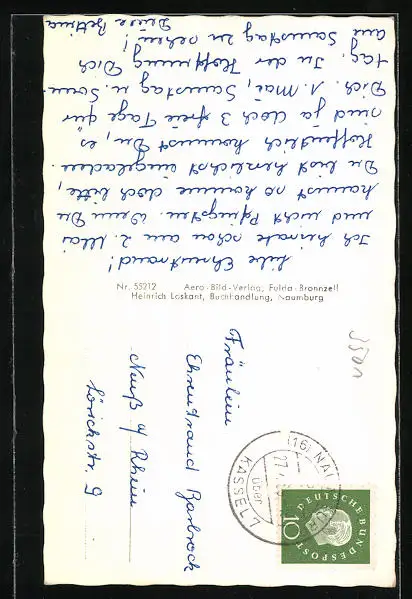 Liebe Ehrentraud!
Ich heirate schon am 2. Mai
und nicht Pfingsten. Wenn Du
kannst so komme doch bitte,
Du bist herzlichst eingeladen.
Hoffentlich kommst Du, es
sind ja doch 3 freie Tage für
Dich. 1. Mai, Samstag u. Sonn-
tag. In der Hoffnung Dich
am Samstag zu sehen!
Deine Bettina
Nr. 55212 Aero-Bild-Verlag, Fulda-Bronnzell
Heinrich Loskant, Buchhandlung, Naumburg
3501
Fräulein
Ehrentraud
Neuß a/ Rhein
Lörickstr. 9
(16) NAUMBURG
über
KASSEL 7
DEUTSCHE BUNDESPOST
10